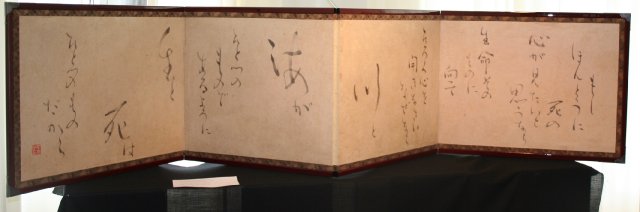 もし
ほんとうに
死の
心が見たいと
思うなら
生命その
ものに
向って
川と
海が
ひとつの
もので
あるように
生と
死は
ひとつのもの
だから